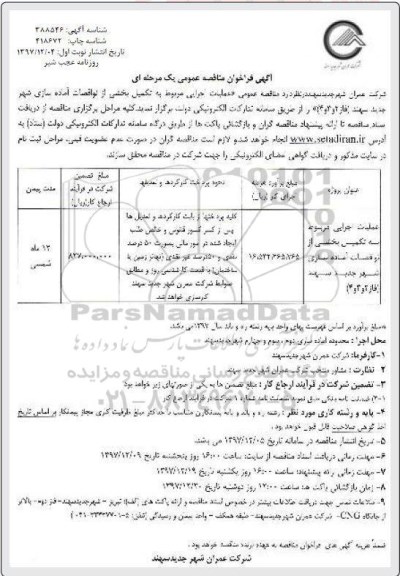 شناسه آگهی: ۳۸۸۵۴۶
شناسه چاپ: ۴۱۸۶۷۲
تاریخ انتشار نوبت اول: ۱۳۹۷/۱۲/۰۴
روزنامه عجب شیر
آگهی فراخوان مناقصه عمومی یک مرحله ای
شرکت عمران شهرجدیدسهند درنظردارد مناقصه عمومی «عملیات اجرایی مربوط به تکمیل بخشی از نواقصات آماده سازی شهر
جدید سهند (فاز۲و۳و۴)» را از طریق سامانه تدارکات الکترونیکی دولت برگزار نماید. کلیه مراحل برگزاری مناقصه از دریافت
سند مناقصه تا ارائه پیشنهاد مناقصه گران و بازگشائی پاکت ها از طریق درگاه سامانه تدارکات الکترونیکی دولت (ستاد) به
آدرس www.setadiran.ir انجام خواهد شد و لازم است مناقصه گران در صورت عدم عضویت قبلی، مراحل ثبت نام
در سایت مذکور و دریافت گواهی امضای الکترونیکی را جهت شرکت در مناقصه محقق سازند.
عنوان پروژه
مبلغ برآورد هزینه اجرای کار (ریال)
نحوه پرداخت کارکردها و تعدیلها
مبلغ تضمین شرکت در فرآیند ارجاع کار(ریال)
مدت پیمان
عملیات اجرایی مربوط به تکمیل بخشی از نواقصات آماده سازی شهر جدید سهند (فاز۲و۳و۴)
۱۶،۵۳۲،۷۶۵،۷۶۵
کلیه پرداختها از بابت کارکردها و تعدیل ها پس از کسر کسور قانونی و خالص طلب ایجاد شده در صورتمالی بصورت ۵۰ درصد نقدی و ۵۰درصد غیر نقدی (تهاتر زمین یا ساختمان) به قیمت کارشناسی روز و مطابق ضوابط شرکت عمران شهر جدید سهند کارسازی خواهد شد
۸۲۷،۰۰۰،۰۰۰
۱۳ ماه شمسی
*مبلغ برآورد بر اساس فهرست بهای واحد پایه رشته راه و باند سال ۱۳۹۷ می باشد.
محل اجرا : محدوده آماده سازی فاز دوم، سوم و چهارم شهرجدیدسهند
۱-کارفرما: شرکت عمران شهرجدیدسهند
۲- نظارت : مشاور منتخب شرکت عمران شهرجدید سهند
۳- تضمین شرکت در فرآیند ارجاع کار : مبلغ تضمین ها به یکی از صورتهای زیر خواهد بود
۴- پایه و رشته کاری مورد نظر : رشته راه و باند و پایه پیمانکاران متناسب با حداکثر مبلغ ظرفیت کاری مجاز پیمانکار بر اساس تاریخ
اخذ گواهی صلاحیت قابل قبول خواهد بود.
۵- تاریخ انتشار مناقصه در سامانه تاریخ ۱۳۹۷/۱۲/۰۵ می باشد.
۶- مهلت زمانی دریافت اسناد مناقصه از سایت: ساعت ۱۶:۰۰ روز پنجشنبه تاریخ ۱۳۹۷/۱۲/۰۹
۷- مهلت زمانی ارائه پیشنهاد: ساعت ۱۶:۰۰ روز یکشنبه تاریخ ۱۳۹۷/۱۲/۱۹
۸- زمان بازگشائی پاکت ها: ساعت ۱۲:۰۰ روز دوشنبه تاریخ ۱۳۹۷/۱۲/۲۰
۹- اطلاعات تماس جهت دریافت اطلاعات بیشتر در خصوص اسناد مناقصه و ارائه پاکت های (الف): تبریز – شهرجدیدسهند-فاز دو- بالاتر
از جایگاه CNG- شرکت عمران شهرجدیدسهند- طبقه همکف - واحد پیمان و رسیدگی
ضمناً هزینه آگهی های فراخوان مناقصه به عهده برنده مناقصه خواهد بود.
شرکت عمران شهر جدیدسهند
ParsNamadData